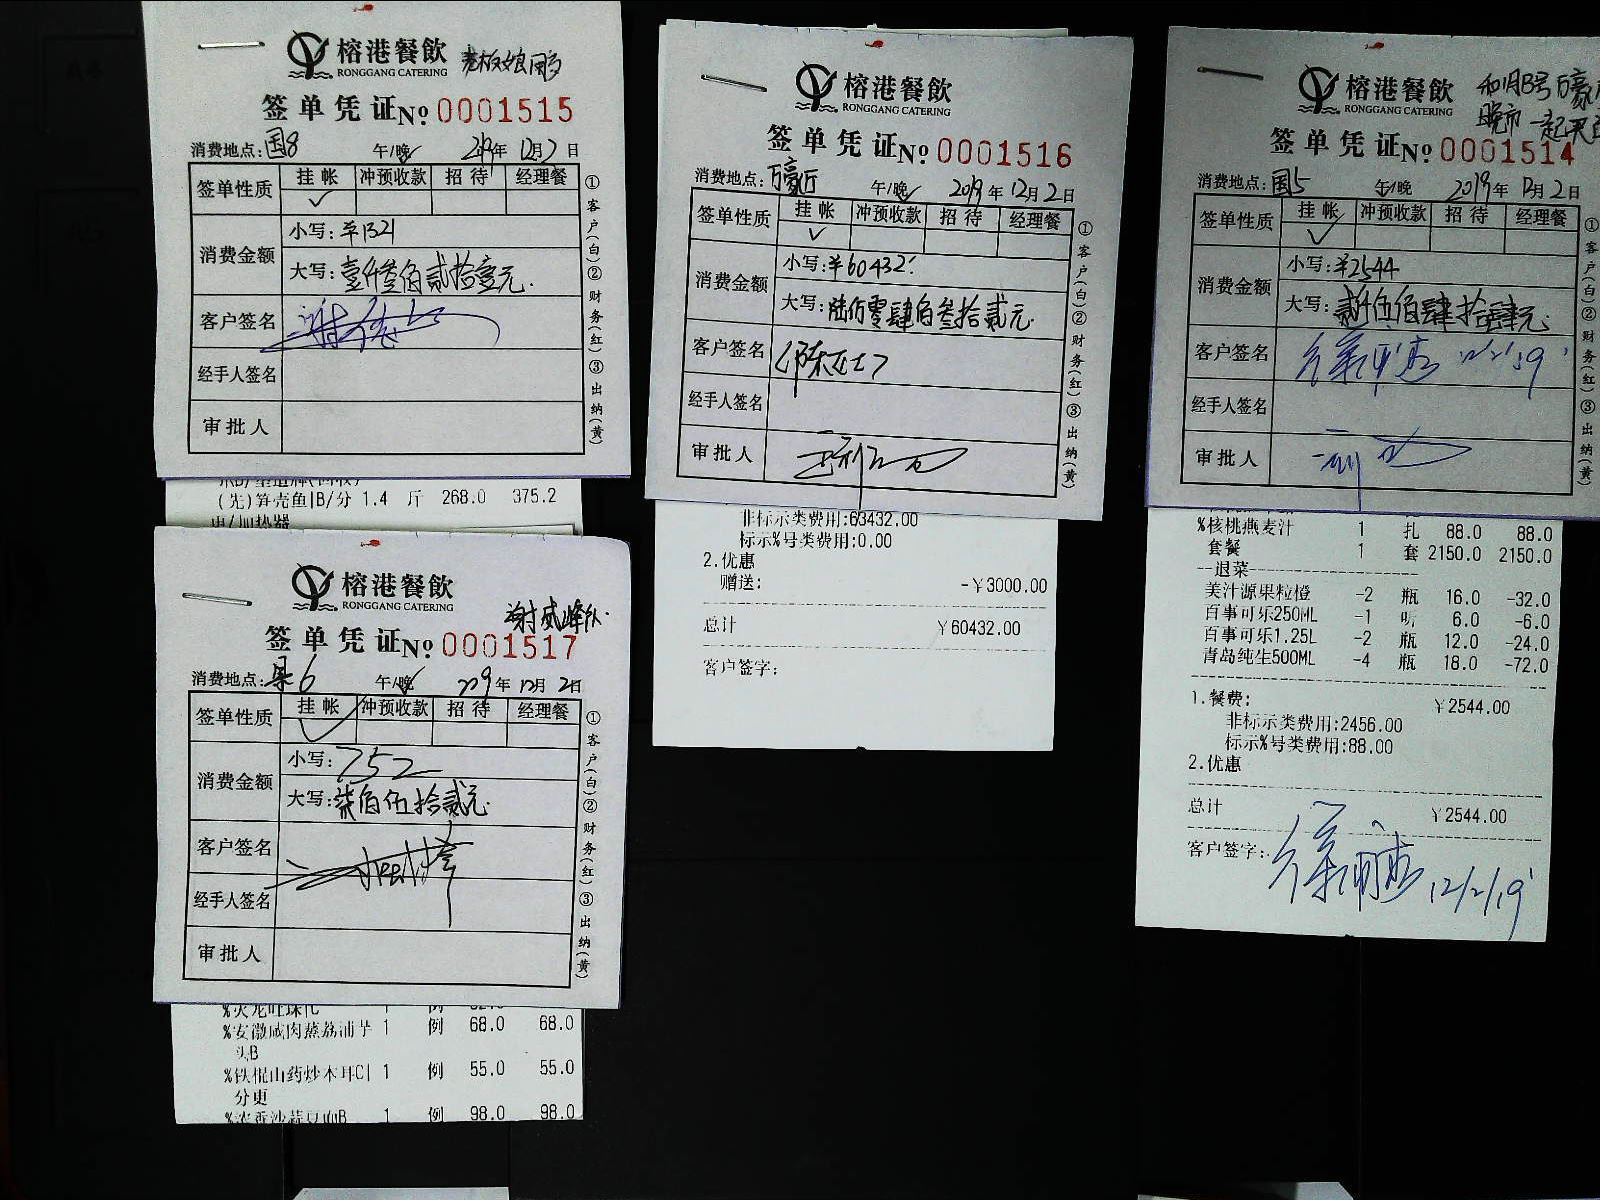 榕港餐飲 老板娘用
RONGGANG CATERING
签单凭证№ 0001515
消费地点:国8 午/晚 2019年12月2日
签单性质 挂帐 冲预收款 招待 经理餐
✓
消费金额 小写:¥1321
大写:壹仟叁佰贰拾壹元.
客户签名
经手人签名
审批人
①客户(白)②财务(红)③出纳(黄)
(先)笋壳鱼|B/分 1.4 斤 268.0 375.2
电/加热器
榕港餐飲
RONGGANG CATERING
谢威峰
签单凭证№ 0001517
消费地点:果6 午/晚 2019年12月2日
签单性质 挂帐 冲预收款 招待 经理餐
消费金额 小写:752
大写:柒佰伍拾贰元.
客户签名
经手人签名
审批人
①客户(白)②财务(红)③出纳(黄)
%火龙吐珠
%安徽咸肉蒸荔浦芋 1 例 68.0 68.0
头B
%铁棍山药炒木耳C| 1 例 55.0 55.0
分更
1 例 98.0 98.0
榕港餐飲
RONGGANG CATERING
签单凭证№ 0001516
消费地点:万豪厅 午/晚 2019年12月2日
签单性质 挂帐 冲预收款 招待 经理餐
✓
消费金额 小写:¥60432.
大写:陆万零肆佰叁拾贰元.
客户签名 (陈女士)
经手人签名
审批人
①客户(白)②财务(红)③出纳(黄)
非标示类费用:63432.00
标示%号类费用:0.00
2.优惠
赠送: -¥3000.00
总计 ¥60432.00
客户签字:
榕港餐飲
RONGGANG CATERING
晚市一起
签单凭证№ 0001514
消费地点:国5 午/晚 2019年12月2日
签单性质 挂帐 冲预收款 招待 经理餐
✓
消费金额 小写:¥2544
大写:贰仟伍佰肆拾肆元.
客户签名 12/2/19'
经手人签名
审批人
①客户(白)②财务(红)③出纳(黄)
%核桃燕麦汁 1 扎 88.0 88.0
套餐 1 套 2150.0 2150.0
--退菜--
美汁源果粒橙 -2 瓶 16.0 -32.0
百事可乐250ML -1 听 6.0 -6.0
百事可乐1.25L -2 瓶 12.0 -24.0
青岛纯生500ML -4 瓶 18.0 -72.0
1.餐费: ¥2544.00
非标示类费用:2456.00
标示%号类费用:88.00
2.优惠
总计 ¥2544.00
客户签字: 12/2/19'